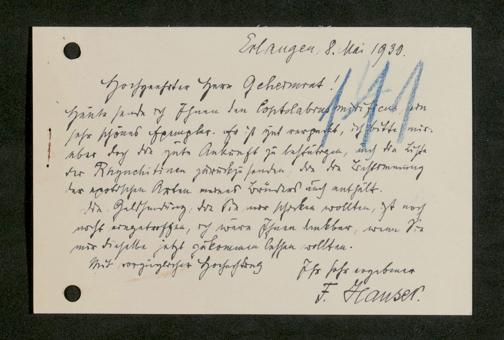 Erlangen, 8. Mai 1930.
Hochgeehrter Herr Geheimrat!
Heute sende ich Ihnen den Coptolabrus mirificus, ein
sehr schönes Exemplar. Er ist gut verpackt, ich bitte mir
aber doch die gute Ankunft zu bestätigen, auch die Liste
der Rhynchitinen zurückzusenden, da die Bestimmung
der exotischen Arten meines Bruders auch enthält.
Die Geldsendung, die Sie mir schicken wollten, ist noch
nicht eingetroffen, ich wäre Ihnen dankbar, wenn Sie
mir dieselbe jetzt zukommen lassen wollten.
Mit vorzüglicher Hochachtung
Ihr sehr ergebener
F. Hauser.